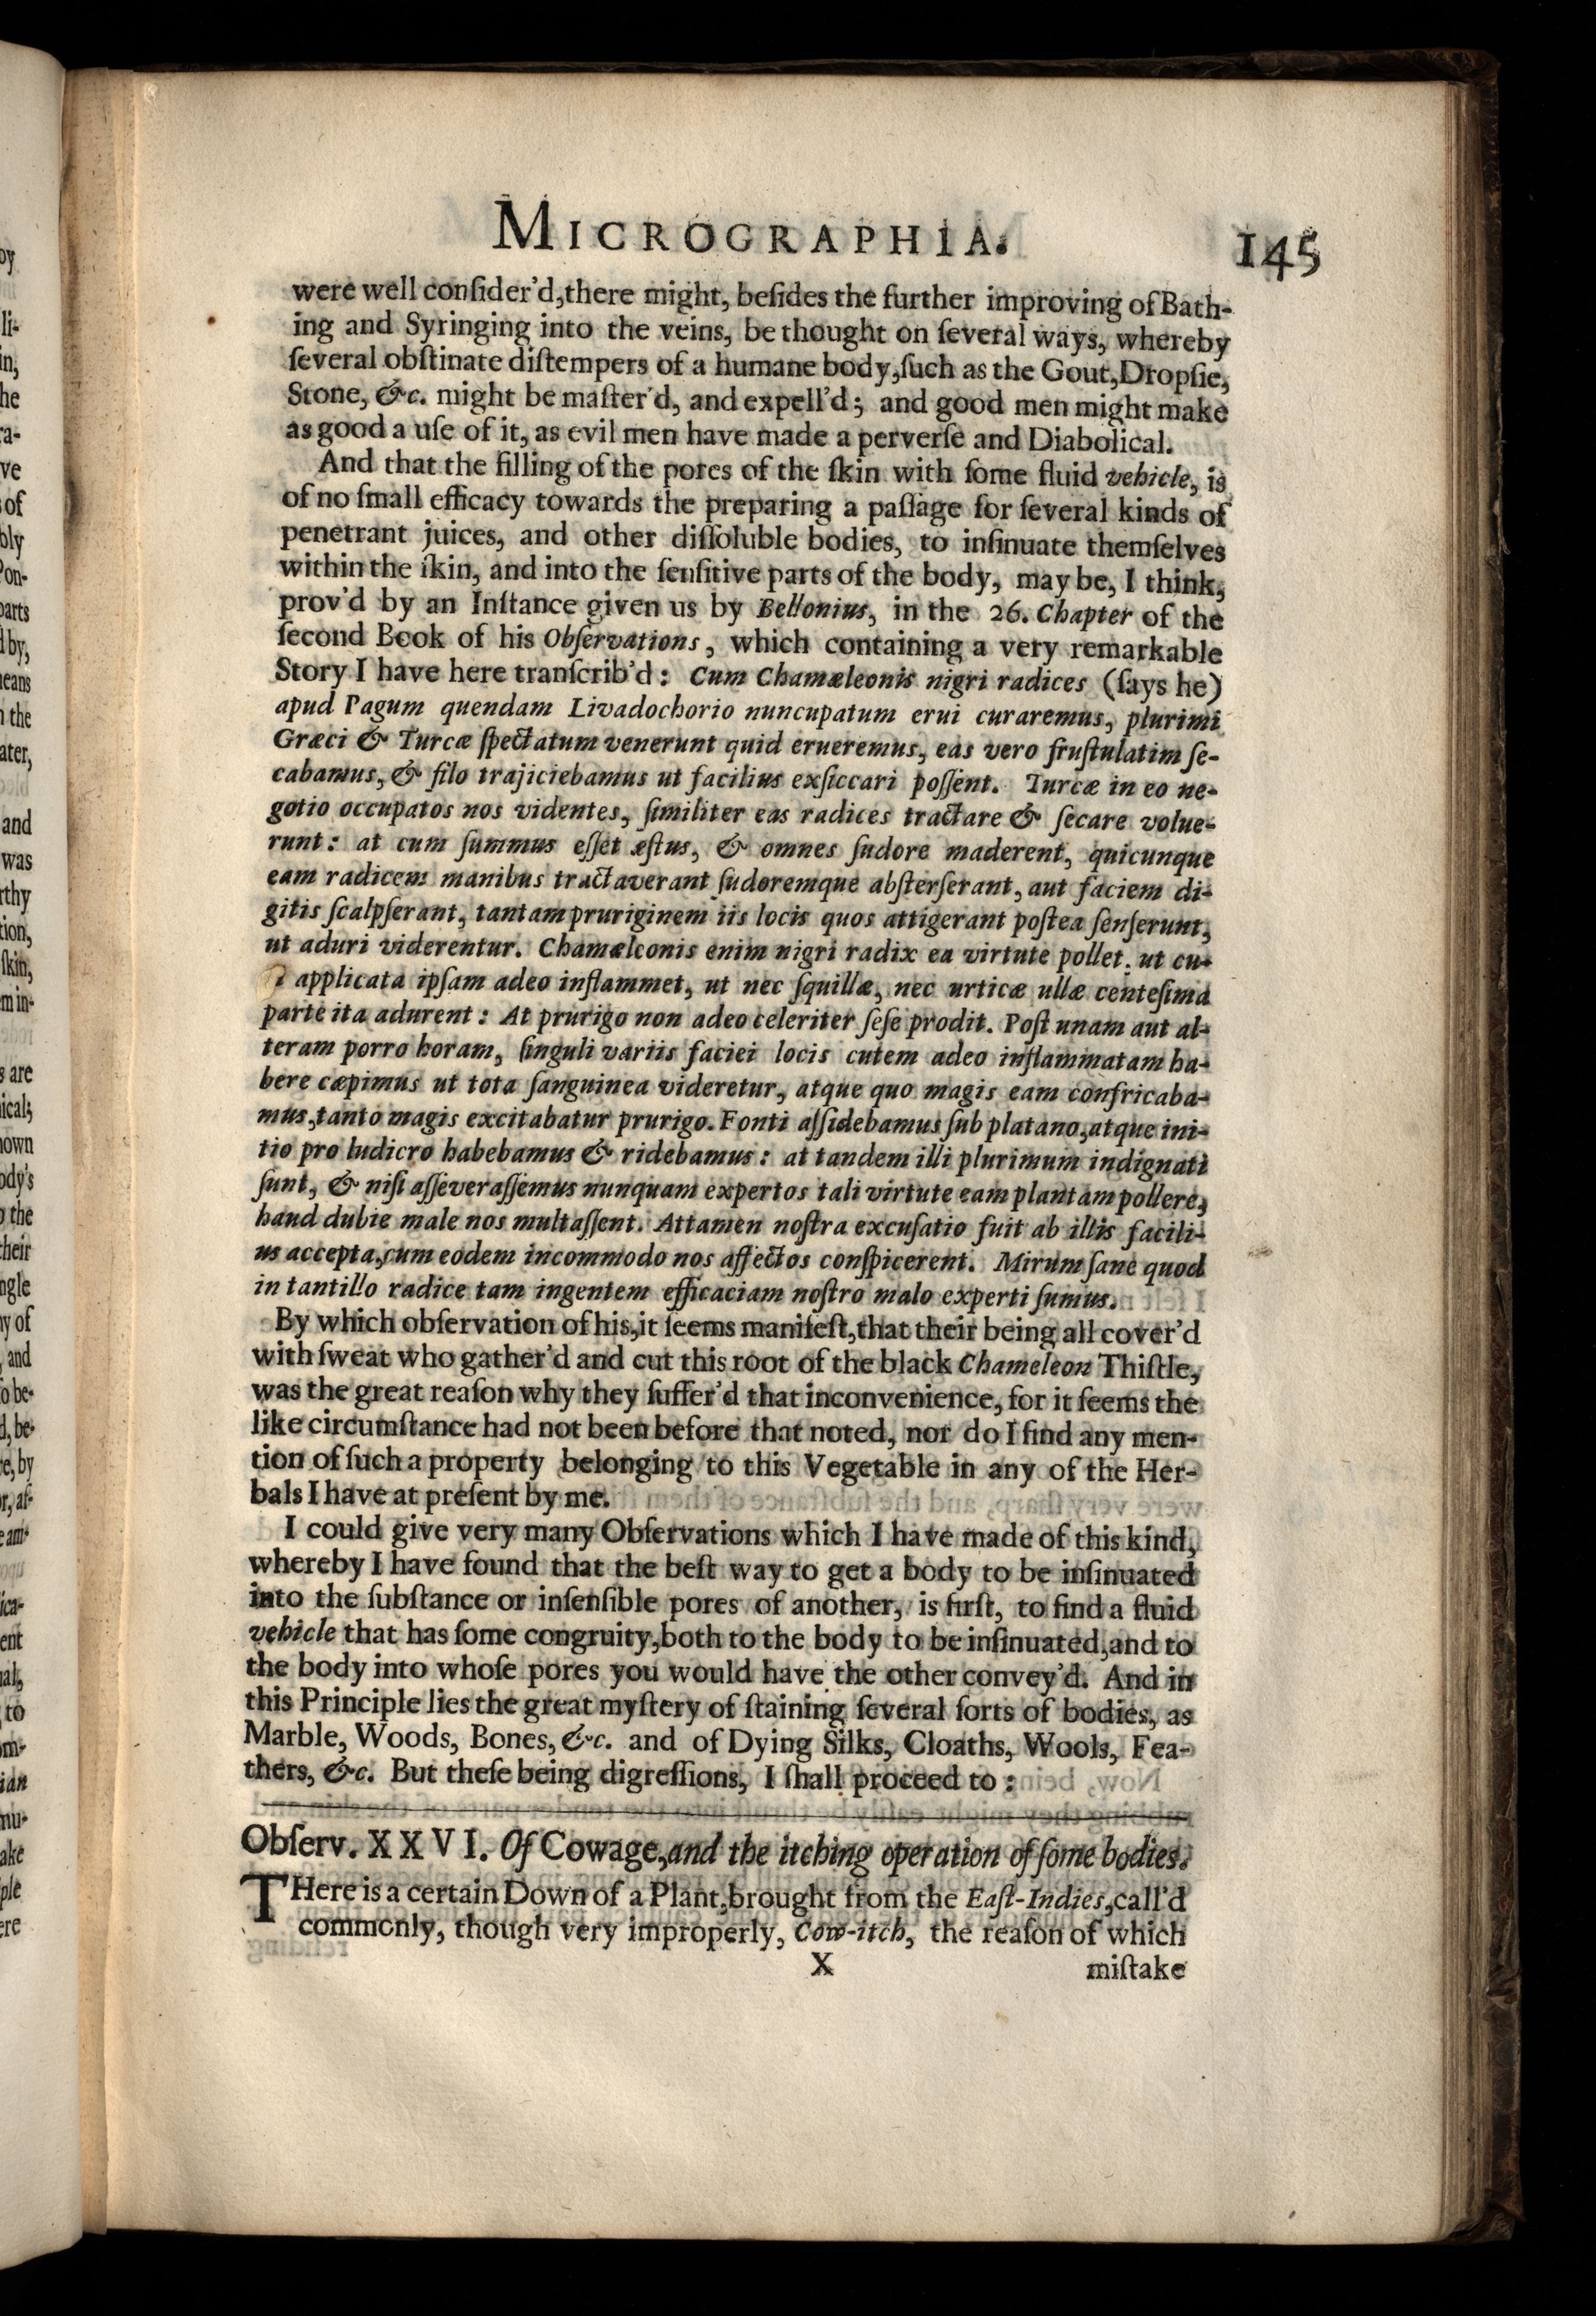 MICROGRAPHIA.
145
were well conſider'd, there might, beſides the further improving of Bath-
ing and Syringing into the veins, be thought on ſeveral ways, whereby
ſeveral obſtinate diſtempers of a humane body, ſuch as the Gout, Dropſie,
Stone, &c. might be maſter'd, and expell'd; and good men might make
as good a uſe of it, as evil men have made a perverſe and Diabolical.
And that the filling of the pores of the ſkin with ſome fluid vehicle, is
of no ſmall efficacy towards the preparing a paſſage for ſeveral kinds of
penetrant juices, and other diſſoluble bodies, to inſinuate themſelves
within the ſkin, and into the ſenſitive parts of the body, may be, I think,
prov'd by an Inſtance given us by Bellonius, in the 26. Chapter of the
ſecond Book of his Obſervations, which containing a very remarkable
Story I have here tranſcrib'd: Cum Chamæleonis nigri radices (ſays he)
apud Pagum quendam Livadochorio nuncupatum erui curaremus, plurimi
Græci & Turcæ ſpectatum venerunt quid erueremus, eas vero fruſtulatim ſe-
cabamus, & filo trajiciebamus ut facilius exſiccari poſſent. Turcæ in eo ne-
gotio occupatos nos videntes, ſimiliter eas radices tractare & ſecare volue-
runt: at cum ſummus eſſet æſtus, & omnes ſudore maderent, quicunque
eam radicem manibus tractaverant ſudoremque abſterſerant, aut faciem di-
gitis ſcalpſerant, tantam pruriginem iis locis quos attigerant poſtea ſenſerunt,
ut aduri viderentur. Chamæleonis enim nigri radix ea virtute pollet, ut cu-
applicata ipſam adeo inflammet, ut nec ſquillæ, nec urticæ ullæ centeſima
parte ita adurent: At prurigo non adeo celeriter ſeſe prodit. Poſt unam aut al-
teram porro horam, ſinguli variis faciei locis cutem adeo inflammatam ha-
bere cæpimus ut tota ſanguinea videretur, atque quo magis eam confricaba-
mus, tanto magis excitabatur prurigo. Fonti aſſidebamus ſub platano, atque ini-
tio pro ludicro habebamus & ridebamus: at tandem illi plurimum indignati
ſunt, & niſi aſſeveraſſemus nunquam expertos tali virtute eam plantam pollere,
haud dubie male nos multaſſent. Attamen noſtra excuſatio fuit ab illis facili-
us accepta, cum eodem incommodo nos affectos conſpicerent. Mirum ſane quod
in tantillo radice tam ingentem efficaciam noſtro malo experti ſumus.
By which obſervation of his, it ſeems manifeſt, that their being all cover'd
with ſweat who gather'd and cut this root of the black Chameleon Thiſtle,
was the great reaſon why they ſuffer'd that inconvenience, for it ſeems the
like circumſtance had not been before that noted, nor do I find any men-
tion of ſuch a property belonging to this Vegetable in any of the Her-
bals I have at preſent by me.
I could give very many Obſervations which I have made of this kind,
whereby I have found that the beſt way to get a body to be inſinuated
into the ſubſtance or inſenſible pores of another, is firſt, to find a fluid
vehicle that has ſome congruity, both to the body to be inſinuated, and to
the body into whoſe pores you would have the other convey'd. And in
this Principle lies the great myſtery of ſtaining ſeveral ſorts of bodies, as
Marble, Woods, Bones, &c. and of Dying Silks, Cloaths, Wools, Fea-
thers, &c. But theſe being digreſſions, I ſhall proceed to:
Obſerv. XXVI. Of Cowage, and the itching operation of ſome bodies.
THere is a certain Down of a Plant, brought from the Eaſt-Indies, call'd
commonly, though very improperly, Cow-itch, the reaſon of which
X
miſtake